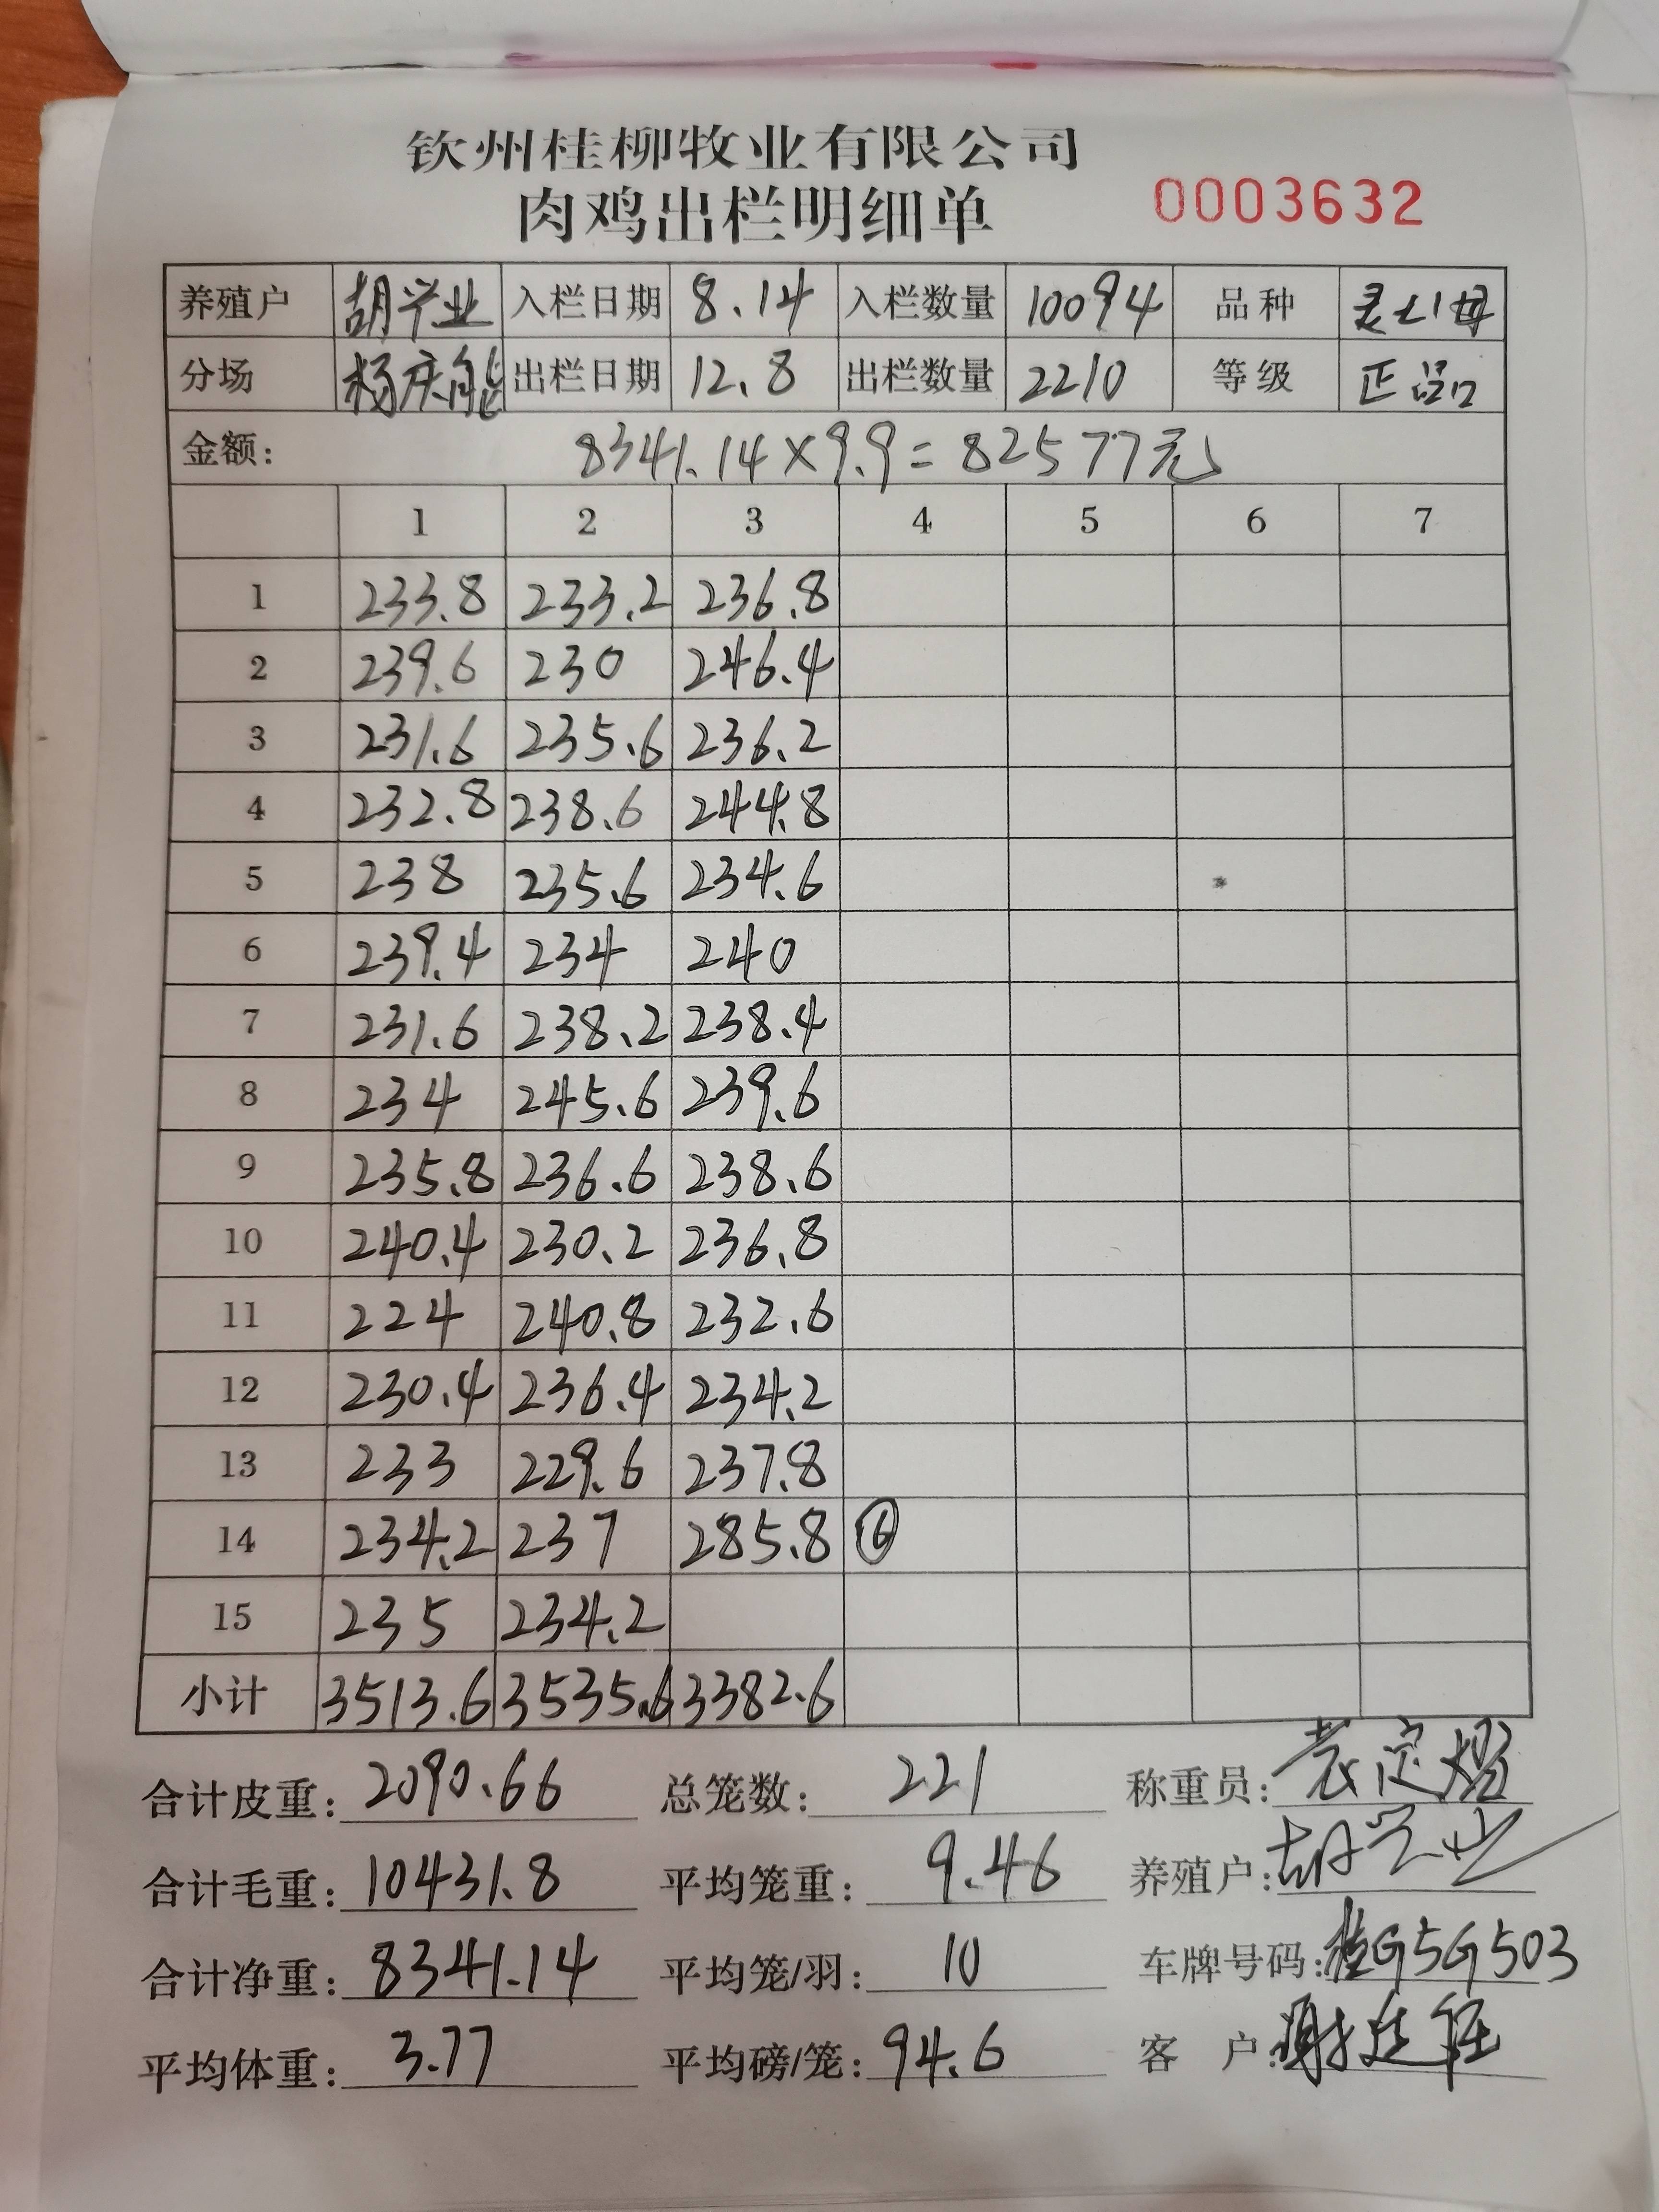 钦州桂柳牧业有限公司
肉鸡出栏明细单 0003632
养殖户 胡兴业 入栏日期 8.14 入栏数量 10094 品种 灵山母
分场 杨庆能 出栏日期 12.8 出栏数量 2210 等级 正品
金额: 8341.14×9.9=82577元
1 2 3 4 5 6 7
1 233.8 233.2 236.8
2 239.6 230 246.4
3 231.6 235.6 236.2
4 232.8 238.6 244.8
5 238 235.6 234.6
6 239.4 234 240
7 231.6 238.2 238.4
8 234 245.6 239.6
9 235.8 236.6 238.6
10 240.4 230.2 236.8
11 224 240.8 232.6
12 230.4 236.4 234.2
13 233 229.6 237.8
14 234.2 237 285.8 ⑥
15 235 234.2
小计 3513.6 3535.6 3382.6
合计皮重: 2090.66 总笼数: 221 称重员:
合计毛重: 10431.8 平均笼重: 9.46 养殖户: 胡兴业
合计净重: 8341.14 平均笼/羽: 10 车牌号码: 桂G5G503
平均体重: 3.77 平均磅/笼: 94.6 客户: